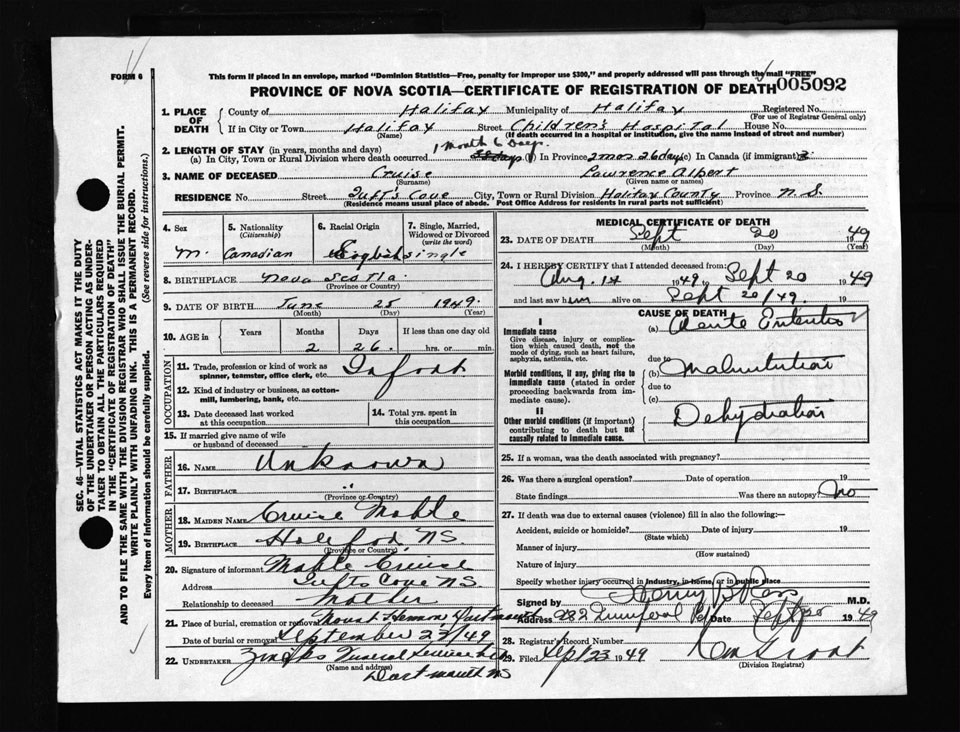 FORM 6
This form if placed in an envelope, marked "Dominion Statistics—Free, penalty for improper use $300," and properly addressed will pass through the mail "FREE"
PROVINCE OF NOVA SCOTIA—CERTIFICATE OF REGISTRATION OF DEATH 005092
1. PLACE OF DEATH
County of Halifax Municipality of Halifax Registered No.
(For use of Registrar General only)
If in City or Town Halifax Street Children's Hospital House No.
(Name) (If death occurred in a hospital or institution, give the name instead of street and number)
2. LENGTH OF STAY (in years, months and days) 1 month 6 Days
(a) In City, Town or Rural Division where death occurred (b) In Province 2 mos 26 days (c) In Canada (if immigrant)
3. NAME OF DECEASED Cruise Lawrence Albert
(Surname) (Given name or names)
RESIDENCE No. Street Tuft's Cove City, Town or Rural Division Halifax County Province N.S.
(Residence means usual place of abode. Post Office Address for residents in rural parts not sufficient)
4. Sex
M.
5. Nationality
(Citizenship)
Canadian
6. Racial Origin
English
7. Single, Married, Widowed or Divorced
(write the word)
single
8. BIRTHPLACE Nova Scotia
(Province or Country)
9. DATE OF BIRTH June 25 1949.
(Month) (Day) (Year)
10. AGE in Years Months Days If less than one day old
2 26. hrs. or min.
OCCUPATION
11. Trade, profession or kind of work as spinner, teamster, office clerk, etc. Infant
12. Kind of industry or business, as cotton-mill, lumbering, bank, etc.
13. Date deceased last worked at this occupation
14. Total yrs. spent in this occupation
15. If married give name of wife or husband of deceased
FATHER
16. NAME Unknown
17. BIRTHPLACE "
(Province or Country)
MOTHER
18. MAIDEN NAME Cruise Mable
19. BIRTHPLACE Halifax, NS.
(Province or Country)
20. Signature of informant Mable Cruise
Address Tufts Cove NS
Relationship to deceased Mother
21. Place of burial, cremation or removal Mount Hermon Dartmouth
Date of burial or removal September 23/49
22. UNDERTAKER Funeral Service
(Name and address)
Dartmouth NS
MEDICAL CERTIFICATE OF DEATH
23. DATE OF DEATH Sept 20 1949
(Month) (Day) (Year)
24. I HEREBY CERTIFY that I attended deceased from:
Aug. 14 1949 to Sept 20 1949
and last saw him alive on Sept 20/49. 19
CAUSE OF DEATH
I
Immediate cause
Give disease, injury or complication which caused death, not the mode of dying, such as heart failure, asphyxia, asthenia, etc.
(a) Acute Enteritis
due to
Morbid conditions, if any, giving rise to immediate cause (stated in order proceeding backwards from immediate cause).
(b) Malnutrition
due to
(c)
II
Other morbid conditions (if important) contributing to death but not causally related to immediate cause.
Dehydration
25. If a woman, was the death associated with pregnancy?
26. Was there a surgical operation? Date of operation 19
State findings Was there an autopsy? No
27. If death was due to external causes (violence) fill in also the following:—
Accident, suicide or homicide? Date of injury 19
(State which)
Manner of injury
(How sustained)
Nature of injury
Specify whether injury occurred in industry, in home, or in public place
Signed by Henry B Ross M.D.
Address 282 Date Sept 20 1949
28. Registrar's Record Number
29. Filed Sept 23 1949
(Division Registrar)
SEC. 46—VITAL STATISTICS ACT MAKES IT THE DUTY
OF THE UNDERTAKER OR PERSON ACTING AS UNDER-
TAKER TO OBTAIN ALL THE PARTICULARS REQUIRED
IN THE "CERTIFICATE OF REGISTRATION OF DEATH"
AND TO FILE THE SAME WITH THE DIVISION REGISTRAR WHO SHALL ISSUE THE BURIAL PERMIT.
WRITE PLAINLY WITH UNFADING INK. THIS IS A PERMANENT RECORD.
Every item of information should be carefully supplied. (See reverse side for instructions.)